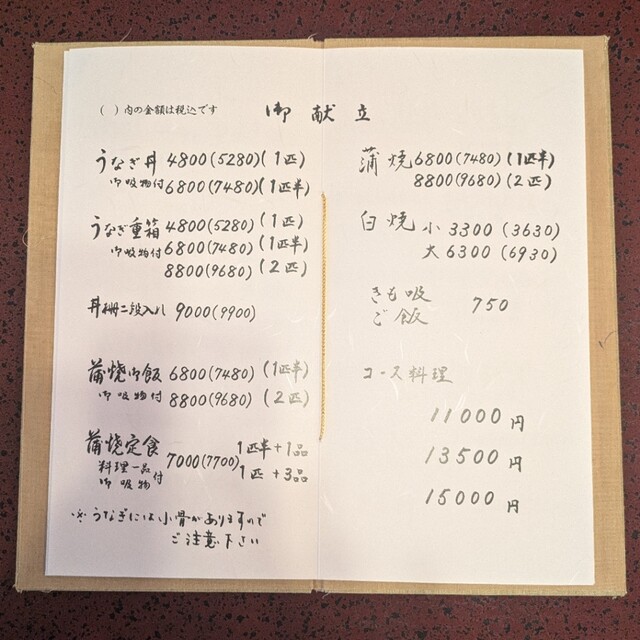 ( )内の金額は税込です
御献立
うなぎ丼 4800(5280)(1匹)
御吸物付 6800(7480)(1匹半)
うなぎ重箱 4800(5280)(1匹)
御吸物付 6800(7480)(1匹半)
8800(9680)(2匹)
丼 二段入れ 9000(9900)
蒲焼御飯 6800(7480)(1匹半)
御吸物付 8800(9680)(2匹)
蒲焼定食 7000(7700) 1匹半+1品
料理一品付 1匹+3品
御吸物
※うなぎには小骨がありますので
ご注意下さい
蒲焼 6800(7480)(1匹半)
8800(9680)(2匹)
白焼 小 3300(3630)
大 6300(6930)
きも吸 750
ご飯
コース料理
11000円
13500円
15000円